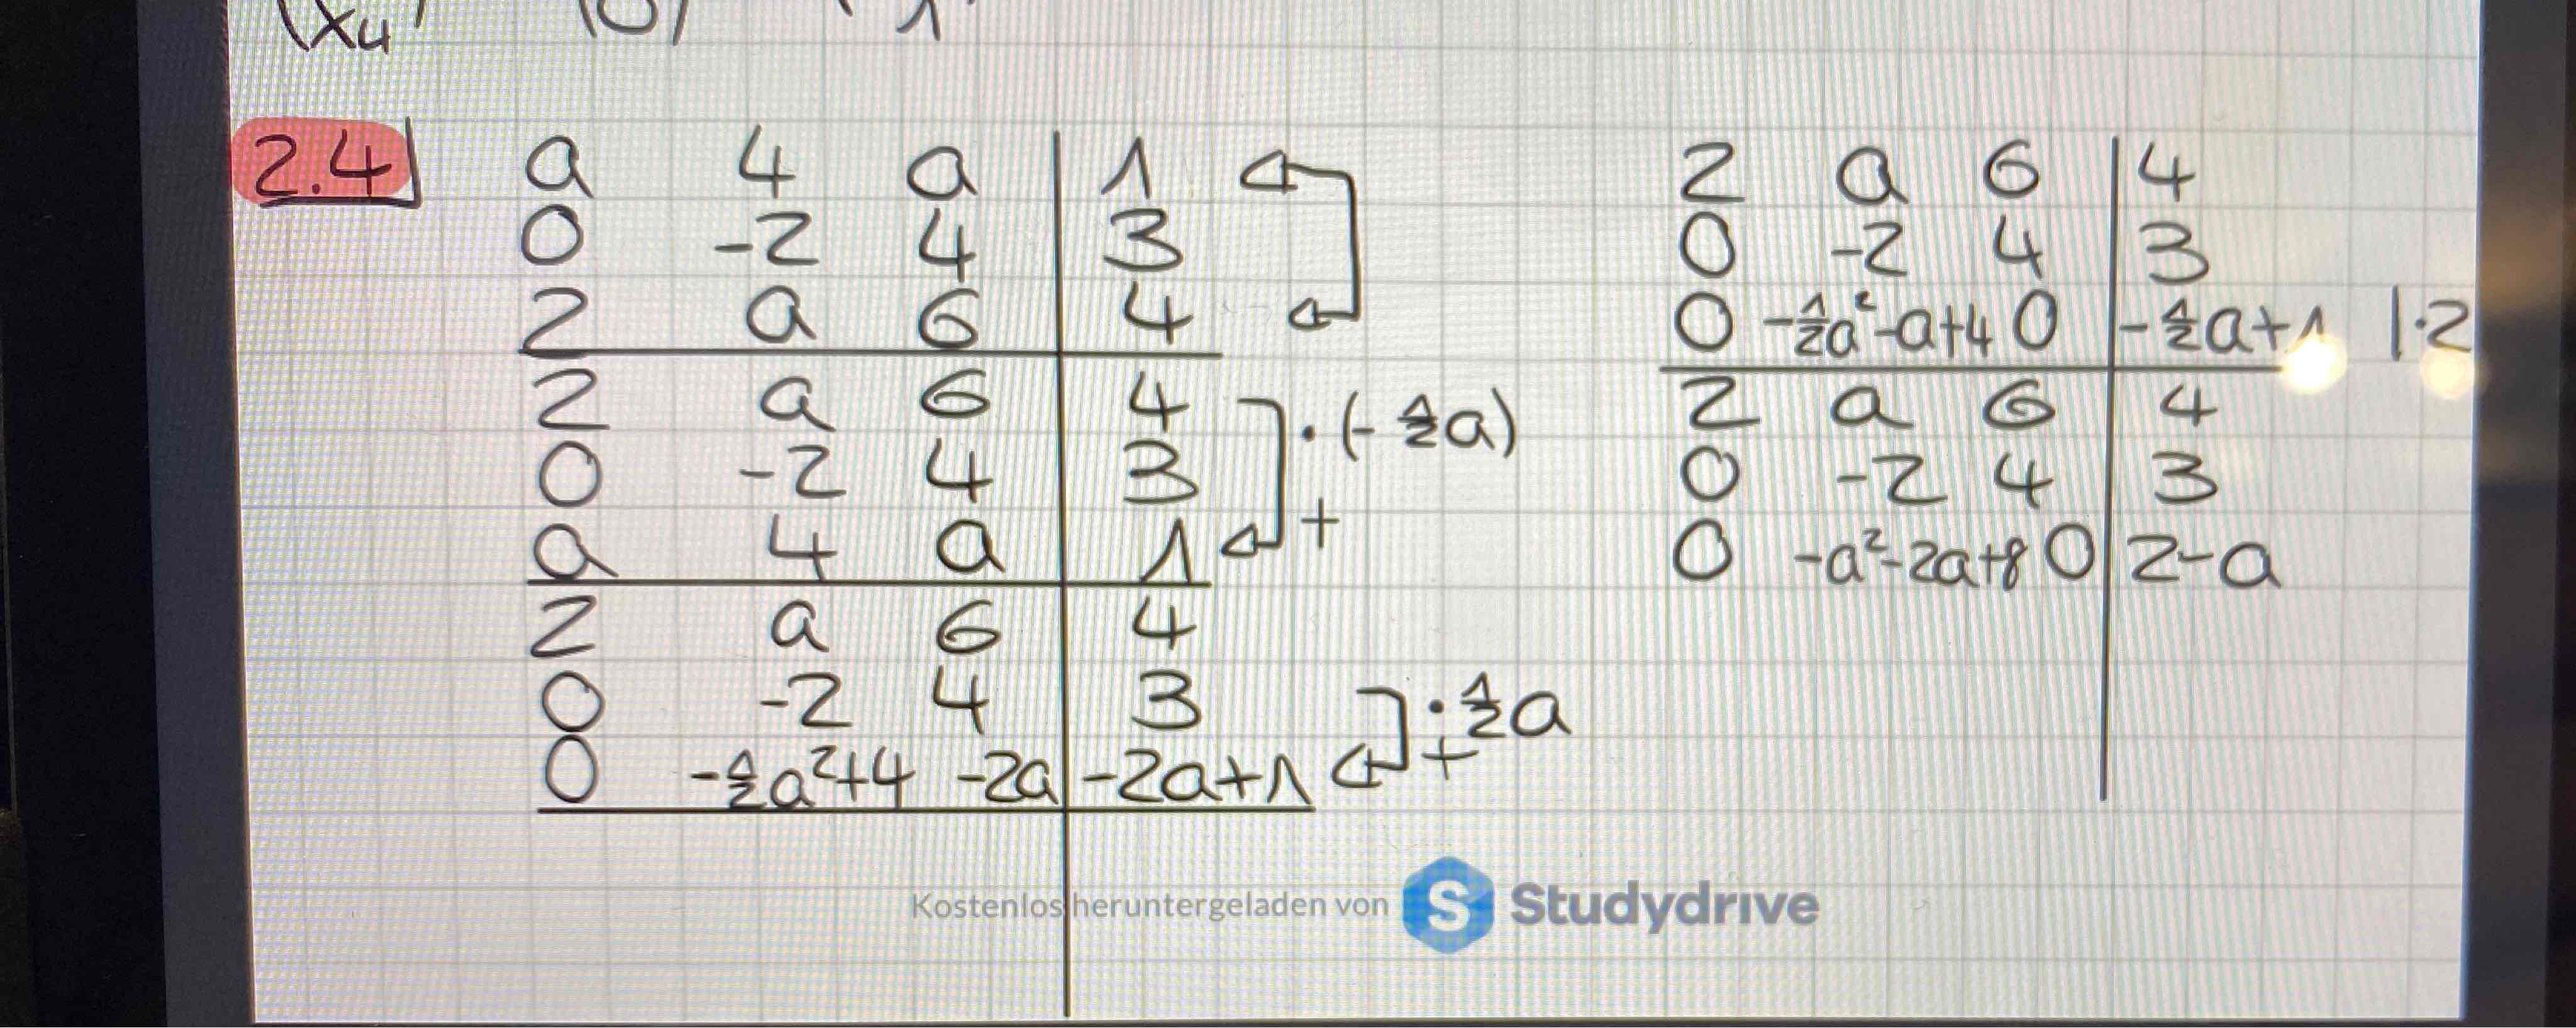 (x4 (0) 1
2.4
a 4 a | 1
0 -2 4 | 3
2 a 6 | 4
2 a 6 | 4 ·(-½a)
0 -2 4 | 3
a 4 a | 1 +
2 a 6 | 4
0 -2 4 | 3 ·½a
0 -½a²+4 -2a | -2a+1 +
2 a 6 | 4
0 -2 4 | 3
0 -½a²-a+4 0 | -½a+1 |·2
2 a 6 | 4
0 -2 4 | 3
0 -a²-2a+8 0 | 2-a
Kostenlos heruntergeladen von S Studydrive